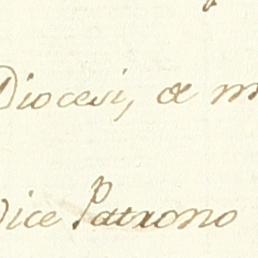 Diocesi, œ m
Vice Patrono